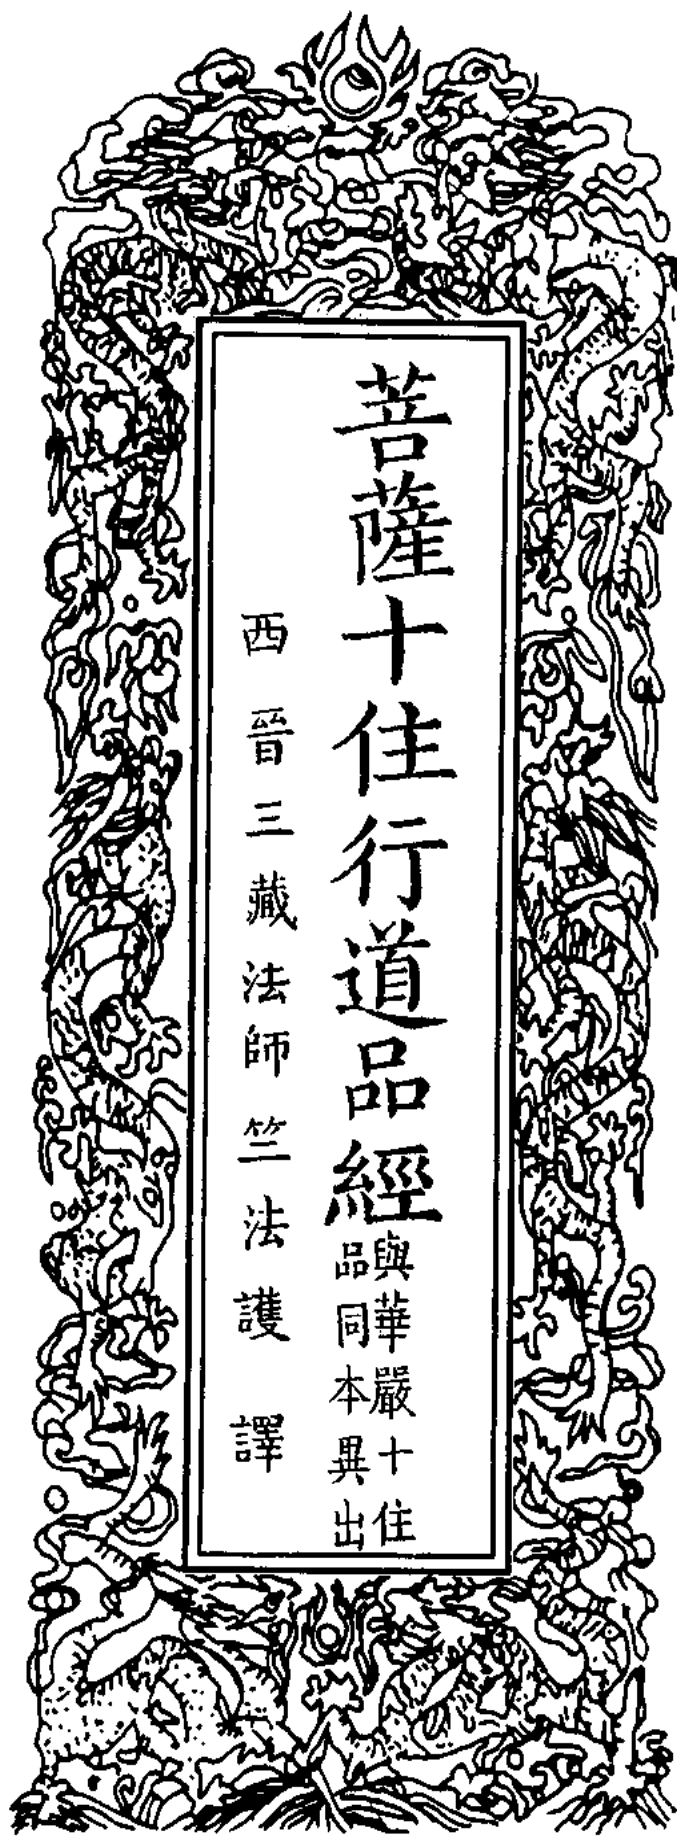 菩薩十住行道品經
與華嚴十住
品同本異出
西晉三藏法師竺法護譯